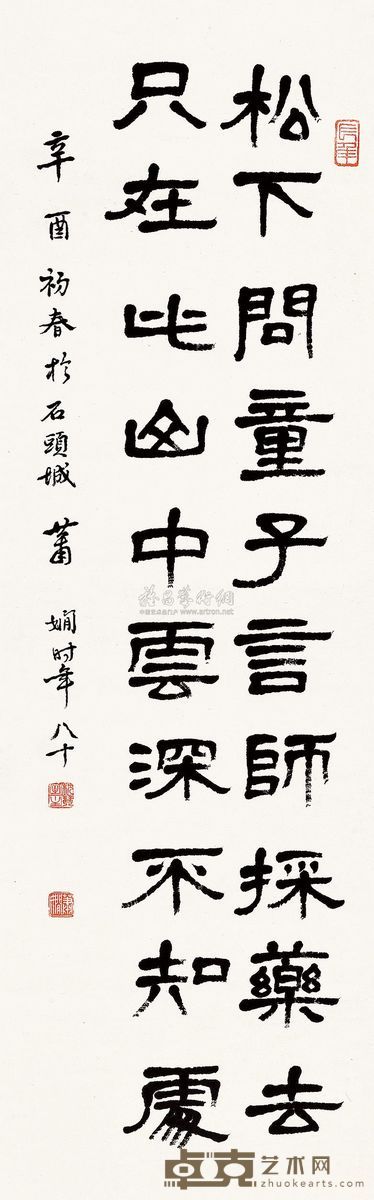 松下問童子言師採藥去
只在此山中雲深不知處
辛酉初春於石頭城 蕭嫻时年八十
雅昌藝術網
www.artron.net
卓克艺术网
zhuokearts.com